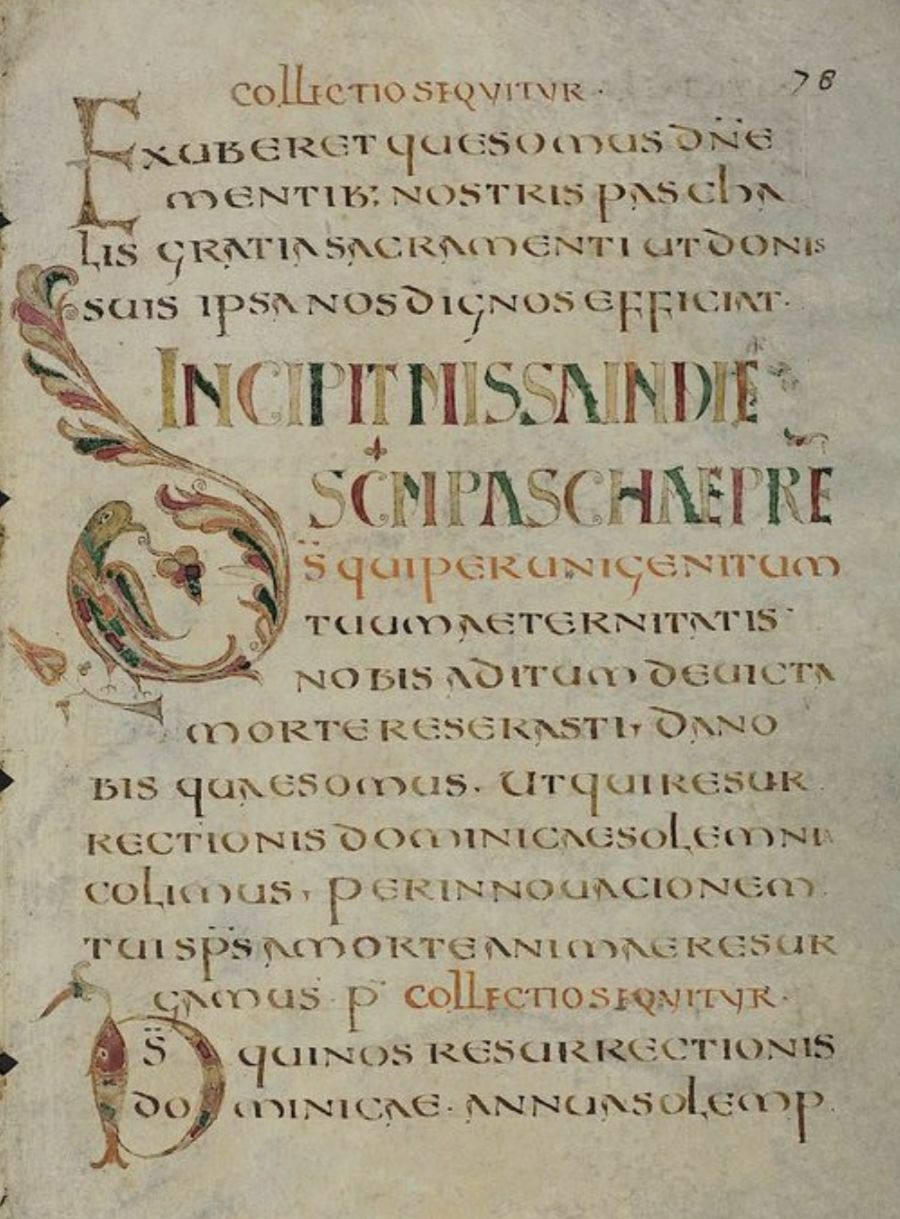 COLLECTIO SEQUITUR· 78
EXUBERET QUESOMUS DÑE
MENTIB; NOSTRIS PASCHA
LIS GRATIA SACRAMENTI UT DONIS
SUIS IPSA NOS DIGNOS EFFICIAT·
INCIPIT MISSA IN DIE
SC̄M PASCHAE PRE
D̄S QUI PER UNIGENITUM
TUUM AETERNITATIS
NOBIS ADITUM DEVICTA
MORTE RESERASTI, DA NO
BIS QUAESOMUS· UT QUI RESUR
RECTIONIS DOMINICAE SOLEMNI
COLIMUS, PER INNOVACIONEM
TUI SP̄S A MORTE ANIMAE RESUR
GAMUS P COLLECTIO SEQUITUR·
D̄S QUI NOS RESURRECTIONIS
DOMINICAE· ANNUA SOLEMP